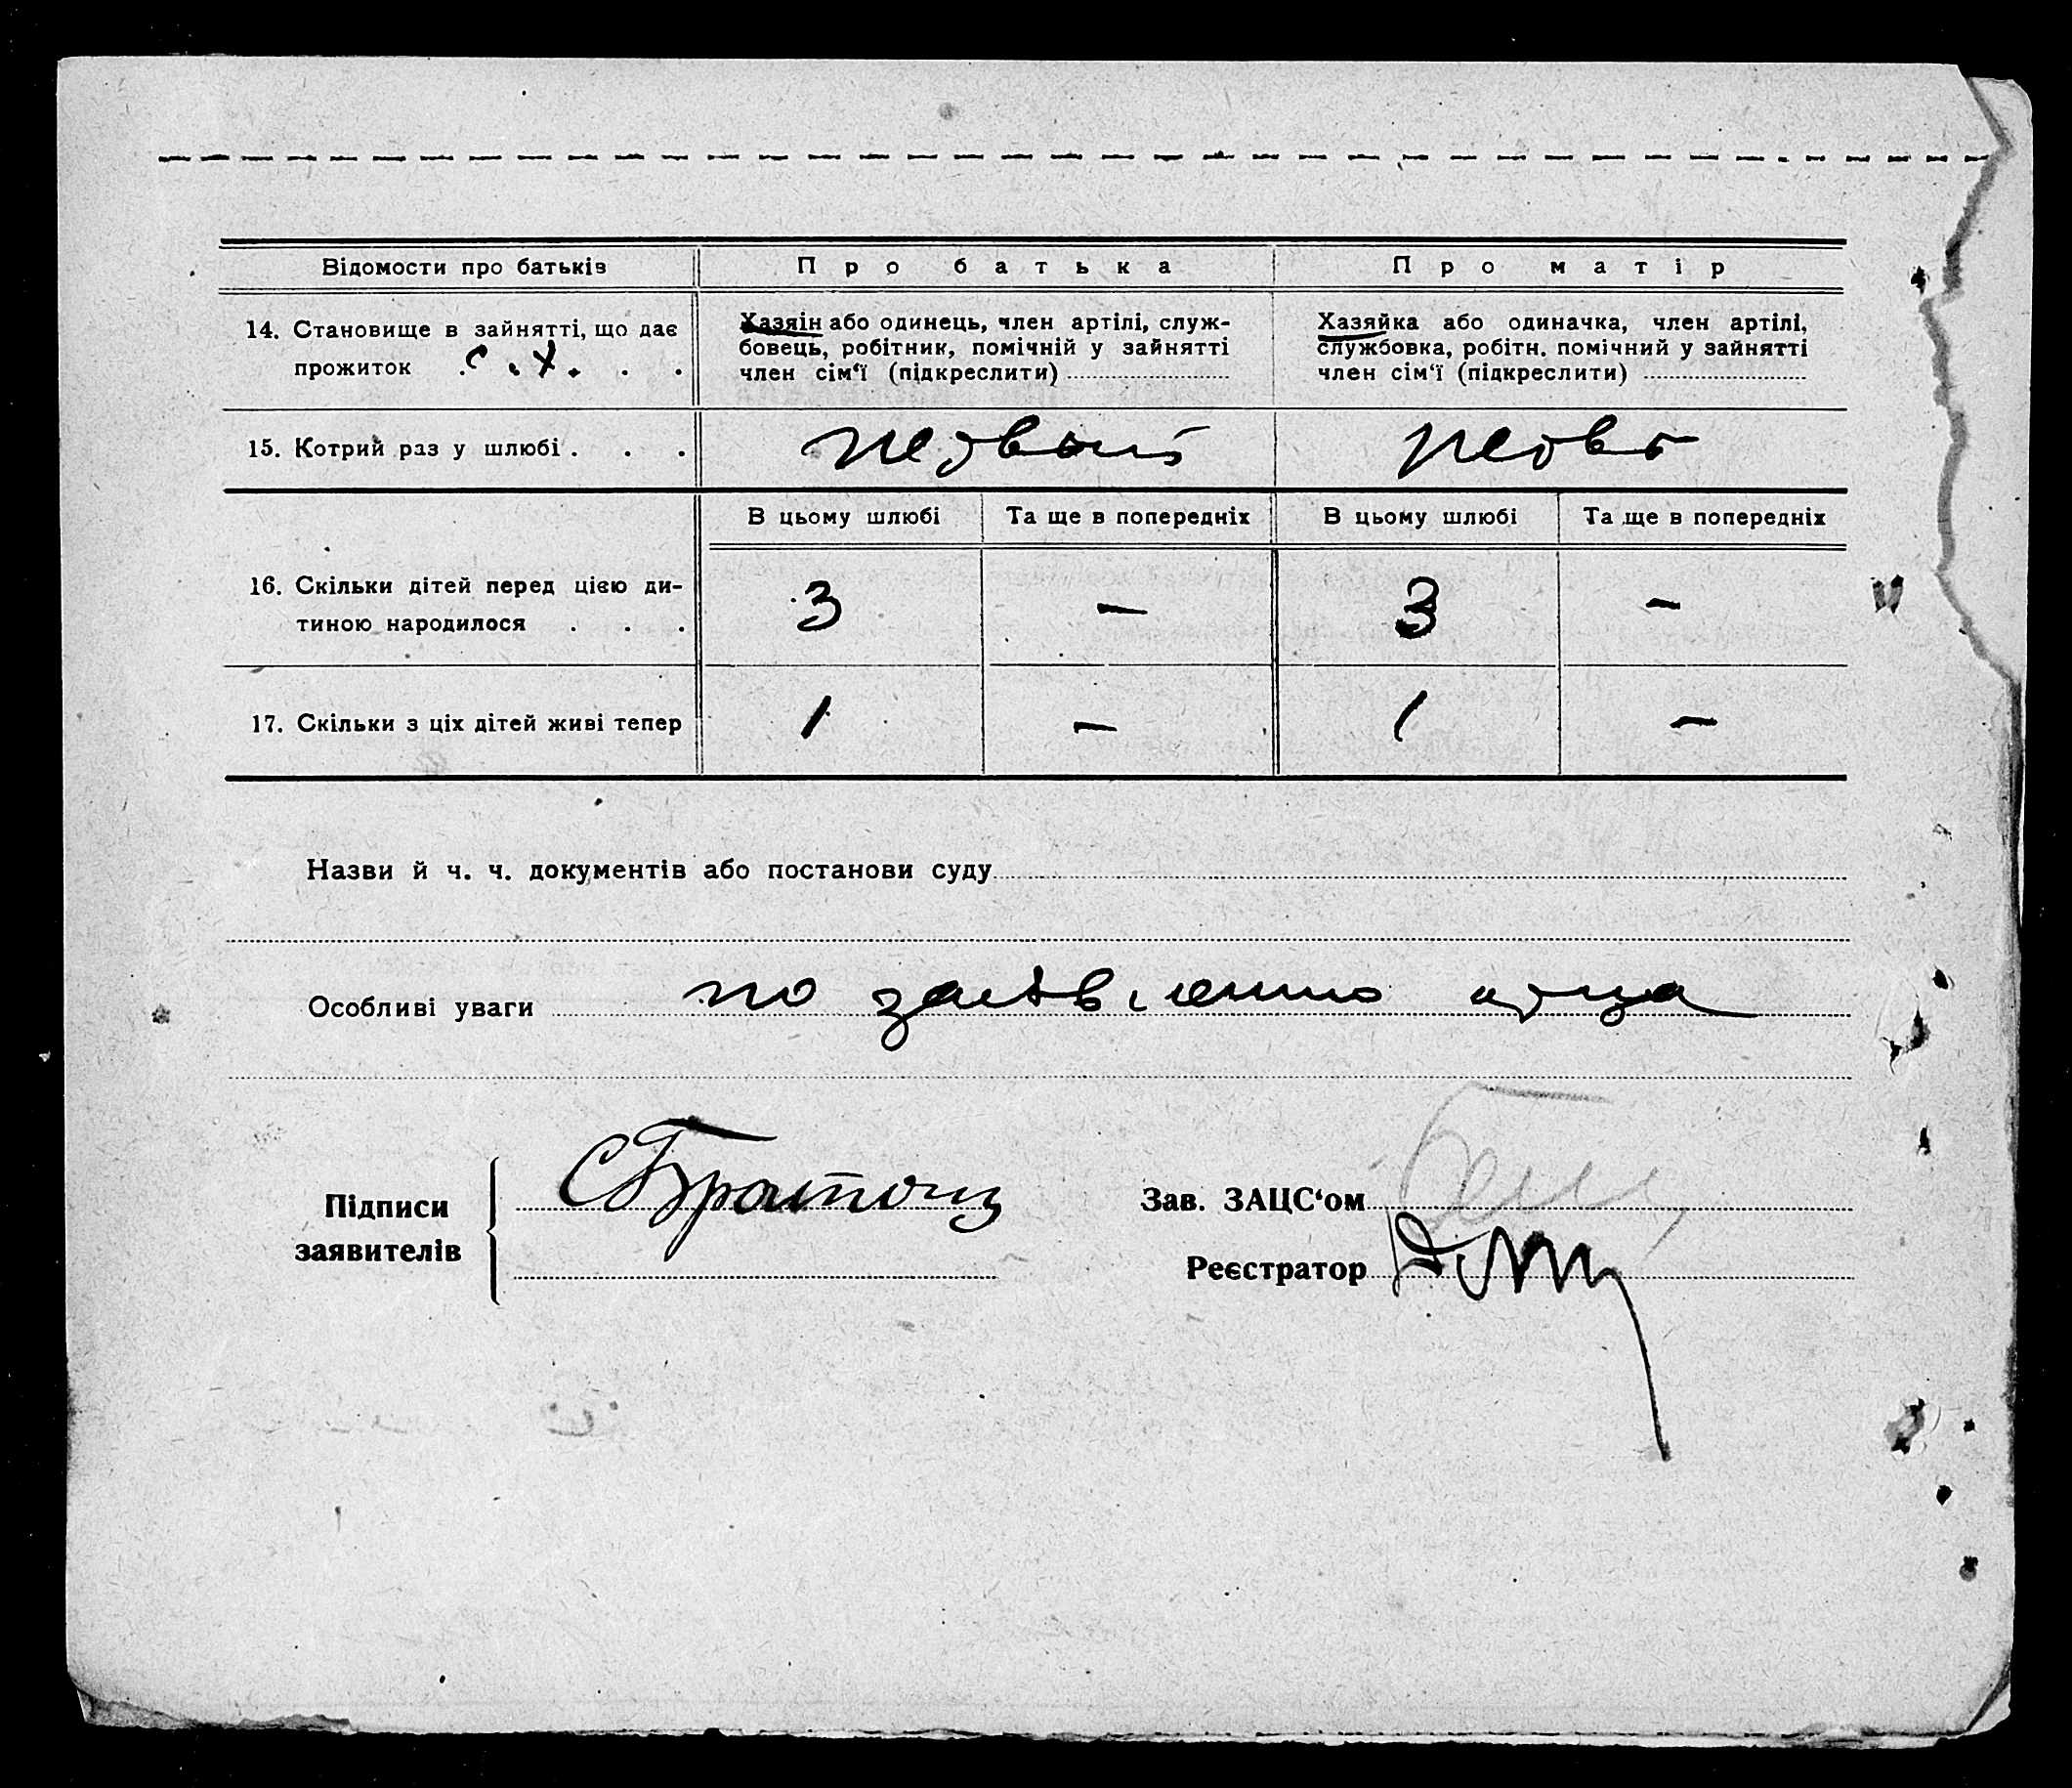 Відомости про батьків Про батька Про матір
14. Становище в зайнятті, що дає
прожиток с. х. . .
Хазяін або одинець, член артілі, служ-
бовець, робітник, помічній у зайнятті
член сім'ї (підкреслити)
Хазяйка або одиначка, член артілі,
службовка, робітн. помічний у зайнятті
член сім'ї (підкреслити)
15. Котрий раз у шлюбі . . . первый перво
В цьому шлюбі Та ще в попередніх В цьому шлюбі Та ще в попередніх
16. Скільки дітей перед цією ди-
тиною народилося . . . 3 — 3 —
17. Скільки з ціх дітей живі тепер 1 — 1 —
Назви й ч. ч. документів або постанови суду
Особливі уваги по заявлению отца
Підписи
заявителів
Зав. ЗАЦС'ом
Реєстратор